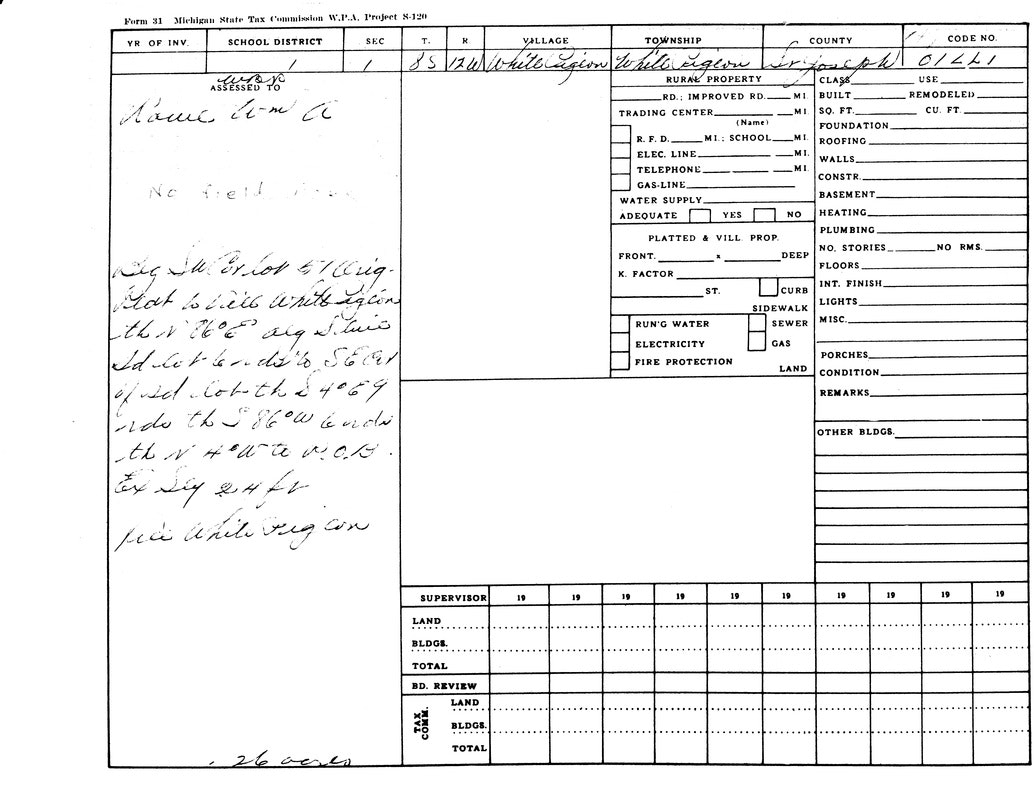 Form 31 Michigan State Tax Commission W.P.A. Project S-120
YR OF INV. SCHOOL DISTRICT SEC T. R VILLAGE TOWNSHIP COUNTY CODE NO.
1 1 8S 12W White Pigeon White Pigeon St. Joseph
ASSESSED TO
Wm A
No field
Beg SW Cor lot 51 Orig.
Plat to Vill White Pigeon
th N 86° E alg S line
sd lot 6 rds to S E Cor
of sd lot th S 4° E 9
rds th S 86° W 6 rds
th N 4° W to P.O.B.
Ex Sly 24 ft
White Pigeon
.26 acres
RURAL PROPERTY
RD.; IMPROVED RD. MI.
TRADING CENTER MI.
(Name)
R. F. D. MI.; SCHOOL MI.
ELEC. LINE MI.
TELEPHONE MI.
GAS-LINE
WATER SUPPLY
ADEQUATE YES NO
PLATTED & VILL. PROP.
FRONT. x DEEP
K. FACTOR
ST. CURB
SIDEWALK
RUN'G WATER SEWER
ELECTRICITY GAS
FIRE PROTECTION
LAND
CLASS USE
BUILT REMODELED
SQ. FT. CU. FT.
FOUNDATION
ROOFING
WALLS
CONSTR.
BASEMENT
HEATING
PLUMBING
NO. STORIES NO RMS.
FLOORS
INT. FINISH
LIGHTS
MISC.
PORCHES
CONDITION
REMARKS
OTHER BLDGS.
SUPERVISOR 19 19 19 19 19 19 19 19 19 19
LAND
BLDGS.
TOTAL
BD. REVIEW
TAX COMM.
LAND
BLDGS.
TOTAL